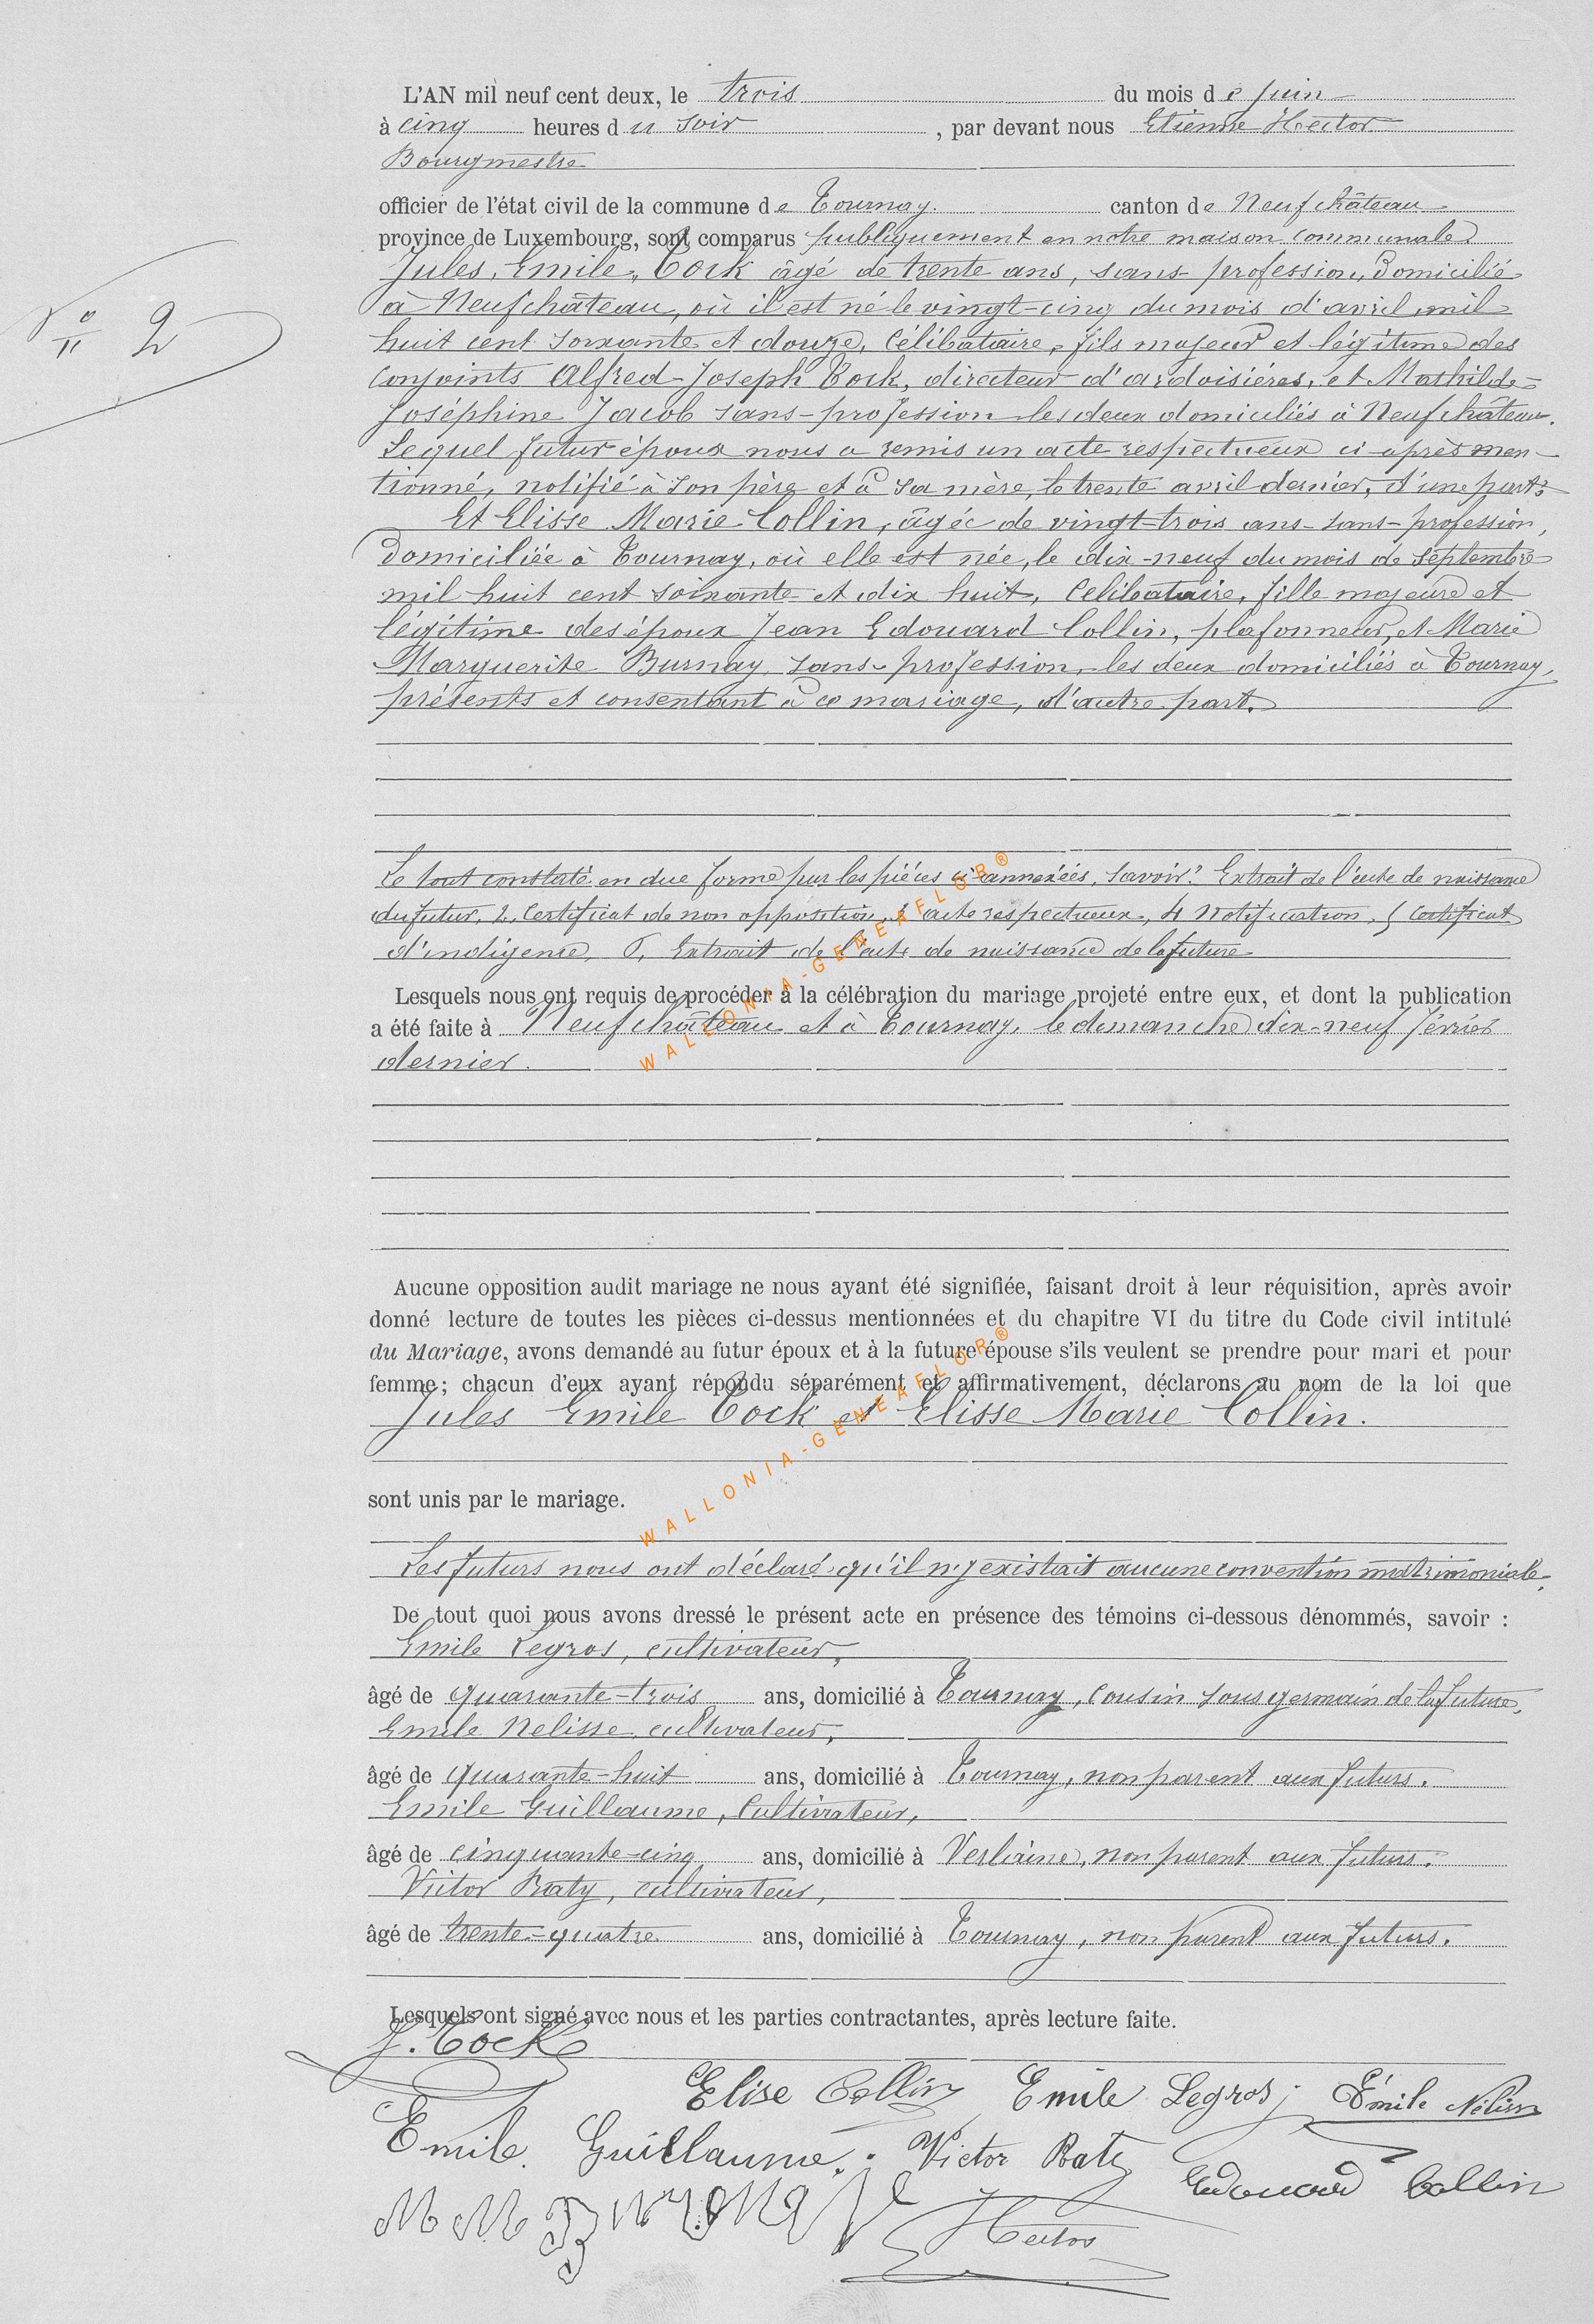 L'AN mil neuf cent deux, le trois du mois de juin
à cinq heures du soir, par devant nous Etienne Hector
Bourgmestre
officier de l'état civil de la commune de Tournay. canton de Neufchâteau
province de Luxembourg, sont comparus publiquement en notre maison communale
N° 2
Jules, Emile, Cock âgé de trente ans, sans profession, domicilié
à Neufchâteau, où il est né le vingt-cinq du mois d'avril mil
huit cent soixante et douze, célibataire, fils majeur et légitime des
conjoints Alfred-Joseph Cock, directeur d'ardoisières, et Mathilde-
Joséphine Jacob sans-profession les deux domiciliés à Neufchâteau.
Lequel futur époux nous a remis un acte respectueux ci-après men-
tionné, notifié à son père et à sa mère, le trente avril dernier, d'une part;
Et Elisse Marie Collin, âgée de vingt-trois ans-sans-profession,
Domiciliée à Tournay, où elle est née, le dix-neuf du mois de septembre
mil huit cent soixante et dix huit, Célibataire, fille majeure et
légitime des époux Jean Edouard Collin, plafonneur, et Marie
Marguerite Burnay, sans-profession, les deux domiciliés à Tournay,
présents et consentant à ce mariage, d'autre part.
Le tout constaté en due forme par les pièces ci-annexées, savoir: Extrait de l'acte de naissance
du futur, 2. Certificat de non opposition, 3 acte respectueux, 4 Notification, 5 Certificat
d'indigence, 6, Extrait de l'acte de naissance de la future
Lesquels nous ont requis de procéder à la célébration du mariage projeté entre eux, et dont la publication
a été faite à Neufchâteau et à Tournay, le dimanche dix-neuf février
dernier.
WALLONIA-GENEAFLOR®
Aucune opposition audit mariage ne nous ayant été signifiée, faisant droit à leur réquisition, après avoir
donné lecture de toutes les pièces ci-dessus mentionnées et du chapitre VI du titre du Code civil intitulé
du Mariage, avons demandé au futur époux et à la future épouse s'ils veulent se prendre pour mari et pour
femme; chacun d'eux ayant répondu séparément et affirmativement, déclarons au nom de la loi que
Jules Emile Cock et Elisse Marie Collin.
WALLONIA-GENEAFLOR®
sont unis par le mariage.
Les futurs nous ont déclaré qu'il n'y existait aucune convention matrimoniale.
De tout quoi nous avons dressé le présent acte en présence des témoins ci-dessous dénommés, savoir :
Emile Legros, cultivateur,
âgé de quarante-trois ans, domicilié à Tournay, cousin sous germain de la future,
Emile Nelisse, cultivateur,
âgé de quarante-huit ans, domicilié à Tournay, non parent aux futurs.
Emile Guillaume, Cultivateur,
âgé de cinquante-cinq ans, domicilié à Verlaine, non parent aux futurs.
Victor Baty, cultivateur,
âgé de trente-quatre ans, domicilié à Tournay, non parent aux futurs.
Lesquels ont signé avec nous et les parties contractantes, après lecture faite.
J. Cock
Elise Collin Emile Legros; Émile Nélisse
Emile Guillaume. Victor Baty Edouard Collin
M M Burnay
Hector